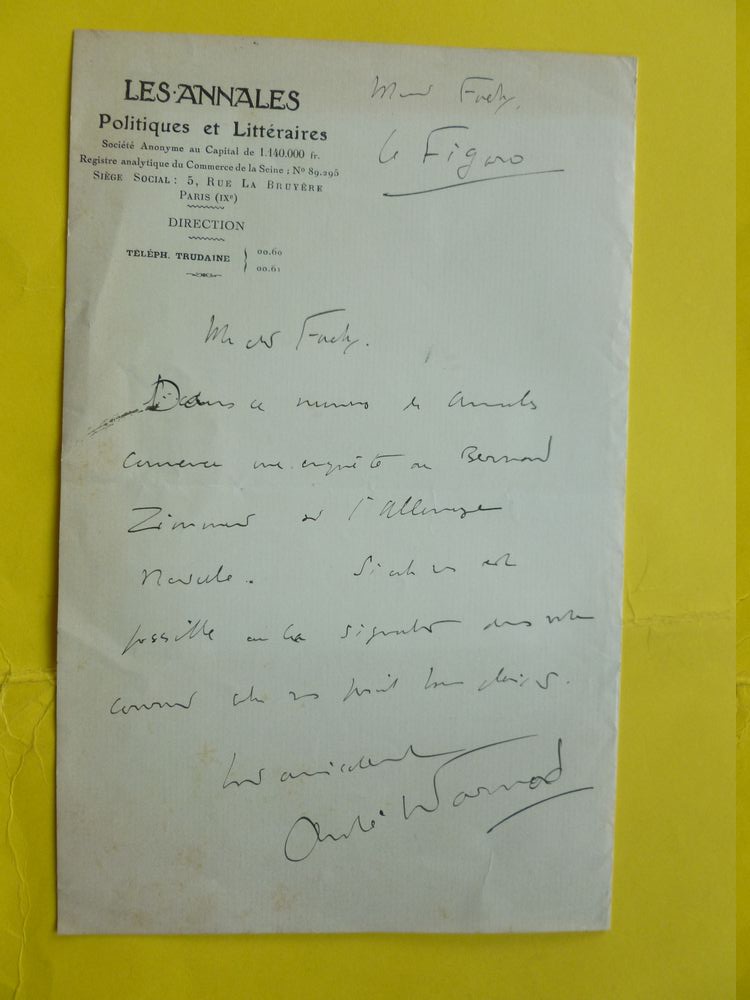 LES·ANNALES
Politiques et Littéraires
Société Anonyme au Capital de 1.140.000 fr.
Registre analytique du Commerce de la Seine : Nº 89.295
SIÈGE SOCIAL : 5, RUE LA BRUYÈRE
PARIS (IXᵉ)
DIRECTION
TÉLÉPH. TRUDAINE } 00.60
00.61
Le Figaro
Dans ce numéro des Annales
commence une enquête de Bernard
Zimmer sur l'Allemagne
Nouvelle. Si cela vous est
possible de la signaler dans votre
courrier cela nous ferait bien plaisir.
Bien amicalement
André Warnod